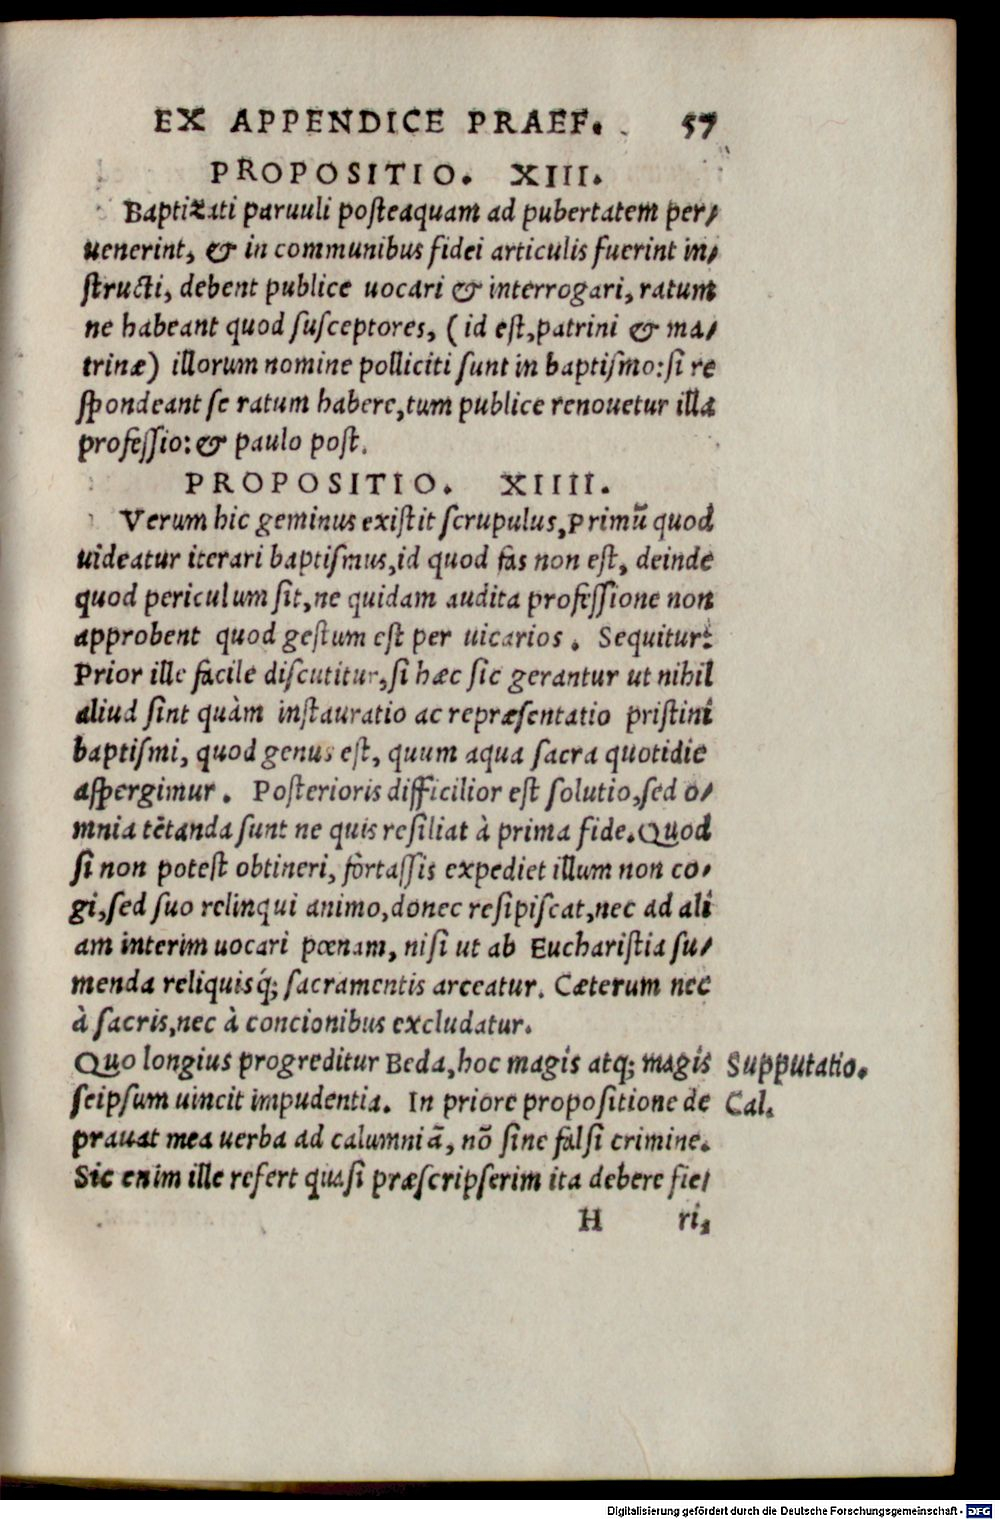 EX APPENDICE PRAEF. 57
PROPOSITIO. XIII.
Baptizati paruuli posteaquam ad pubertatem per/
uenerint, & in communibus fidei articulis fuerint in/
structi, debent publice uocari & interrogari, ratum
ne habeant quod susceptores, (id est, patrini & ma/
trinæ) illorum nomine polliciti sunt in baptismo: si re
spondeant se ratum habere, tum publice renouetur illa
professio: & paulo post.
PROPOSITIO. XIIII.
Verum hic geminus existit scrupulus, primũ quod
uideatur iterari baptismus, id quod fas non est, deinde
quod periculum sit, ne quidam audita professione non
approbent quod gestum est per uicarios. Sequitur:
Prior ille facile discutitur, si hæc sic gerantur ut nihil
aliud sint quàm instauratio ac repræsentatio pristini
baptismi, quod genus est, quum aqua sacra quotidie
aspergimur. Posterioris difficilior est solutio, sed o/
mnia tẽtanda sunt ne quis resiliat à prima fide. Quod
si non potest obtineri, fortassis expediet illum non co/
gi, sed suo relinqui animo, donec resipiscat, nec ad ali
am interim uocari pœnam, nisi ut ab Eucharistia su/
menda reliquisq́; sacramentis arceatur. Cæterum nec
à sacris, nec à concionibus excludatur.
Quo longius progreditur Beda, hoc magis atq; magis Supputatio.
seipsum uincit impudentia. In priore propositione de Cal.
prauat mea uerba ad calumniã, nõ sine falsi crimine.
Sic enim ille refert quasi præscripserim ita debere fie/
H ri,
Digitalisierung gefördert durch die Deutsche Forschungsgemeinschaft - DFG